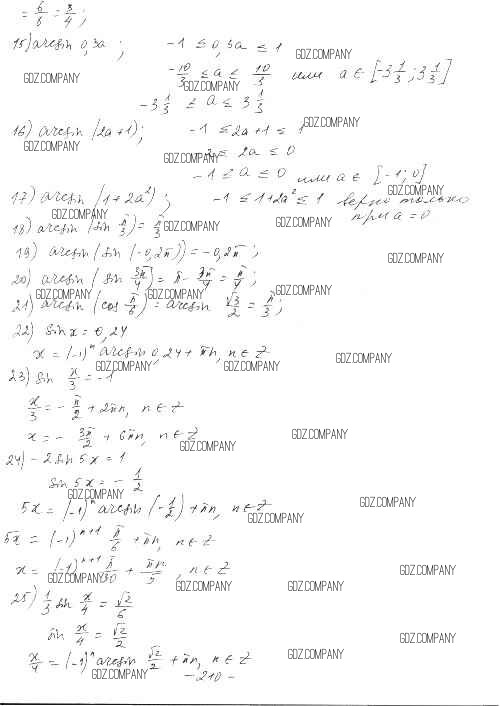 = 6/8 = 3/4;
15) arcsin 0,3a; -1 ≤ 0,3a ≤ 1
GDZ.COMPANY
-10/3 ≤ a ≤ 10/3 или a ∈ [-3 1/3; 3 1/3]
GDZ.COMPANY GDZ.COMPANY
-3 1/3 ≤ a ≤ 3 1/3
16) arcsin (2a+1); -1 ≤ 2a+1 ≤ 1
GDZ.COMPANY
GDZ.COMPANY GDZ.COMPANY
≤ 2a ≤ 0
-1 ≤ a ≤ 0 или a ∈ [-1; 0]
GDZ.COMPANY
17) arcsin (1+2a²); -1 ≤ 1+2a² ≤ 1 верно только
GDZ.COMPANY при a = 0
18) arcsin (sin π/3) = π/3
GDZ.COMPANY GDZ.COMPANY
19) arcsin (sin (-0,2π)) = -0,2π;
GDZ.COMPANY
20) arcsin (sin 3π/4) = π - 3π/4 = π/4;
GDZ.COMPANY GDZ.COMPANY GDZ.COMPANY
21) arcsin (cos π/6) = arcsin √3/2 = π/3;
22) sin x = 0,24
x = (-1)ⁿ arcsin 0,24 + πn, n ∈ Z
GDZ.COMPANY
GDZ.COMPANY GDZ.COMPANY
23) sin x/3 = -1
x/3 = -π/2 + 2πn, n ∈ Z
x = -3π/2 + 6πn, n ∈ Z
GDZ.COMPANY
GDZ.COMPANY
24) -2 sin 5x = 1
sin 5x = -1/2
GDZ.COMPANY
5x = (-1)ⁿ arcsin (-1/2) + πn, n ∈ Z
GDZ.COMPANY
GDZ.COMPANY
5x = (-1)ⁿ⁺¹ π/6 + πn, n ∈ Z
x = (-1)ⁿ⁺¹ π/30 + πn/5, n ∈ Z
GDZ.COMPANY GDZ.COMPANY
GDZ.COMPANY GDZ.COMPANY
25) 1/3 sin x/4 = √2/6
sin x/4 = √2/2
GDZ.COMPANY
x/4 = (-1)ⁿ arcsin √2/2 + πn, n ∈ Z
GDZ.COMPANY
GDZ.COMPANY
-210-